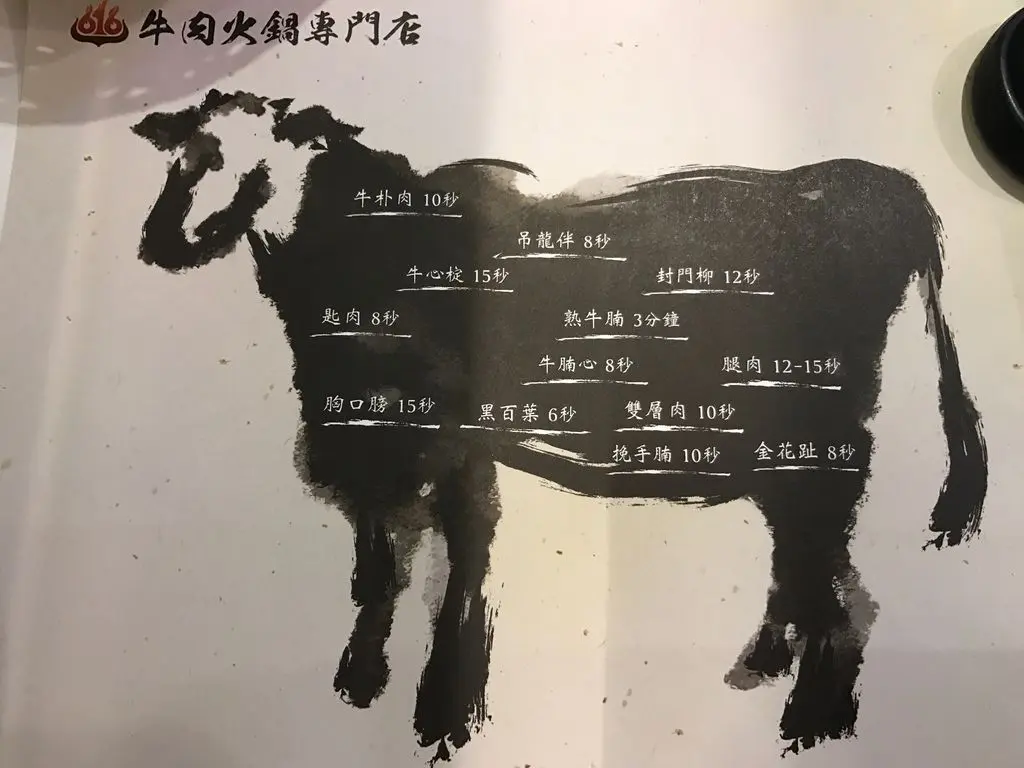 616 牛肉火鍋專門店
牛朴肉 10秒
吊龍伴 8秒
牛心椗 15秒
封門柳 12秒
匙肉 8秒
熟牛腩 3分鐘
牛腩心 8秒
腿肉 12-15秒
胸口膀 15秒
黑百葉 6秒
雙層肉 10秒
挽手腩 10秒
金花趾 8秒